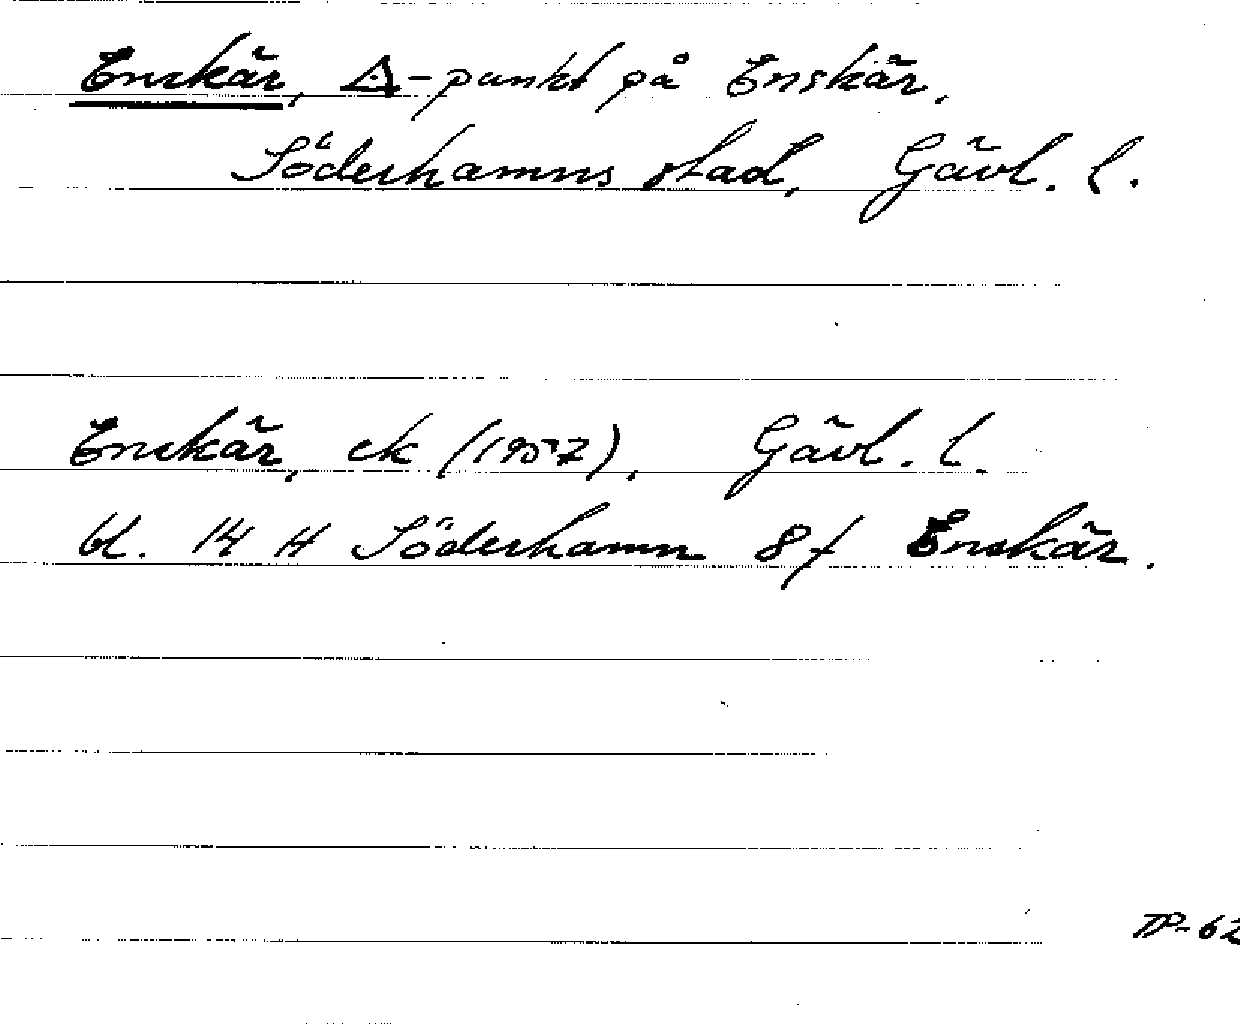 Enskär, △-punkt på Enskär,
Söderhamns stad, Gävl. l.
Enskär, ek (1957), Gävl. l.
bl. 14 H Söderhamn 8f Enskär.
TP-62